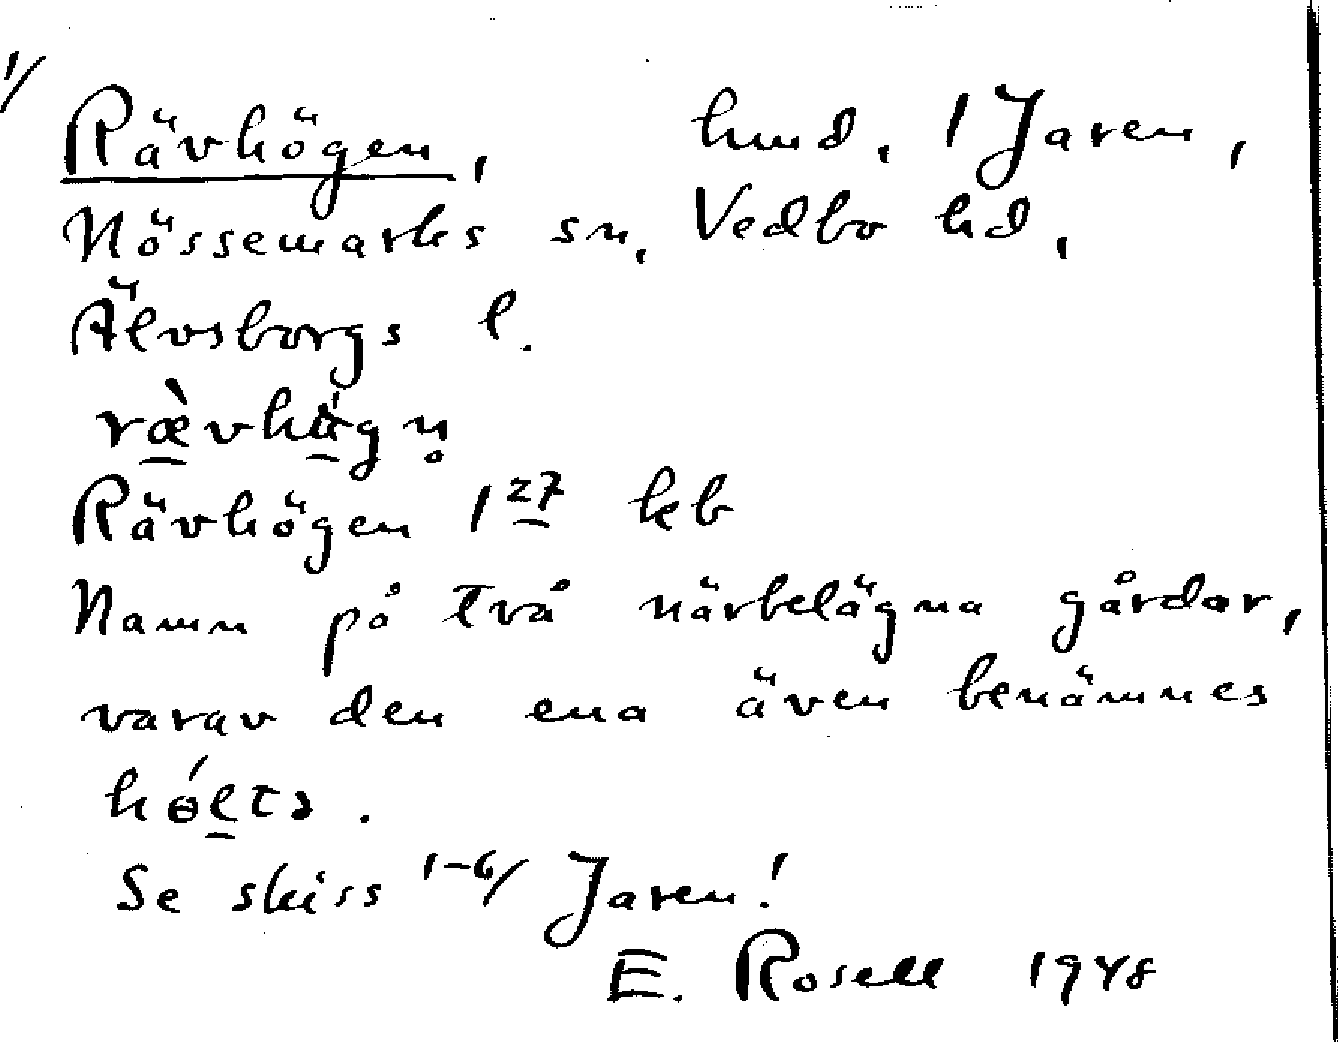 1/
Rävhögen, hmd. 1 Jaren,
Nössemarks sn, Vedbo hd,
Älvsborgs l.
Rävhögen 1 27 kb
Namn på två närbelägna gårdar,
varav den ena även benämnes
Se skiss 1-6/ Jaren!
E. Rosell 1948